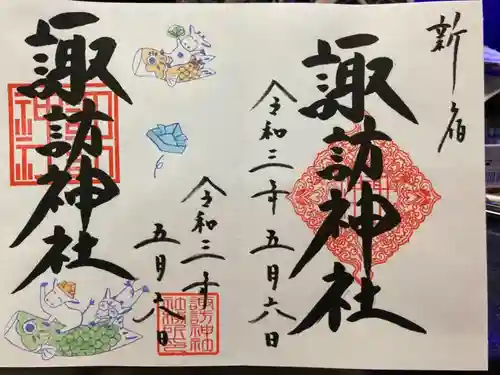 新宿
諏訪神社
令和三年五月六日
諏訪神社
令和三年
五月六日
諏訪神社
社務所印